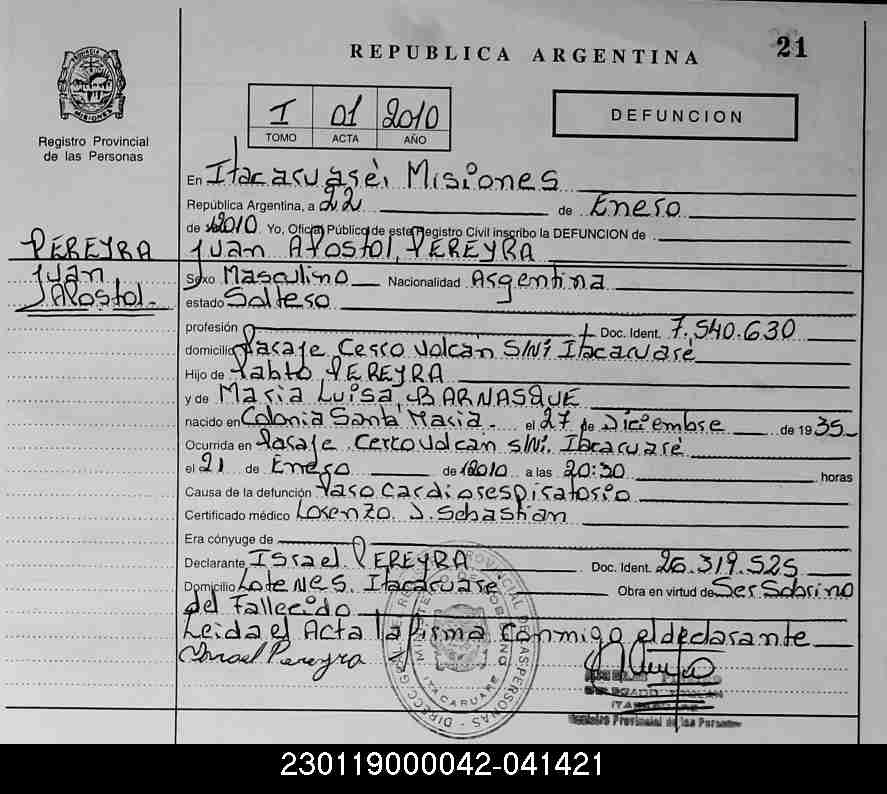 21
REPUBLICA ARGENTINA
PROVINCIA DE MISIONES
Registro Provincial
de las Personas
I 01 2010
TOMO ACTA AÑO
DEFUNCION
En Itacaruaré, Misiones
República Argentina, a 22 de Enero
de 2010 Yo, Oficial Público de este Registro Civil inscribo la DEFUNCION de
PEREYRA
Juan
Apostol.
Juan Apostol, PEREYRA
Sexo Masculino Nacionalidad Argentina
estado Soltero
profesión Doc. Ident. 7.540.630
domicilio Pasaje Cerro Volcan S/N; Itacaruaré
Hijo de Pablo PEREYRA
y de Maria Luisa, BARNASQUE
nacido en Colonia Santa Maria. el 27 de Diciembre de 1935
Ocurrida en Pasaje Cerro Volcan s/N; Itacaruaré
el 21 de Enero de 2010 a las 20:30 horas
Causa de la defunción Paro cardiorespiratorio
Certificado médico Lorenzo J. Sebastian
Era cónyuge de
Declarante Israel PEREYRA Doc. Ident. 26.319.525
Domicilio Lote Nes. Itacaruaré Obra en virtud de Ser Sobrino
del Fallecido
Leida el Acta la firma conmigo el declarante
Israel Pereyra
ITACARUARE
Registro Provincial de las Personas
230119000042-041421